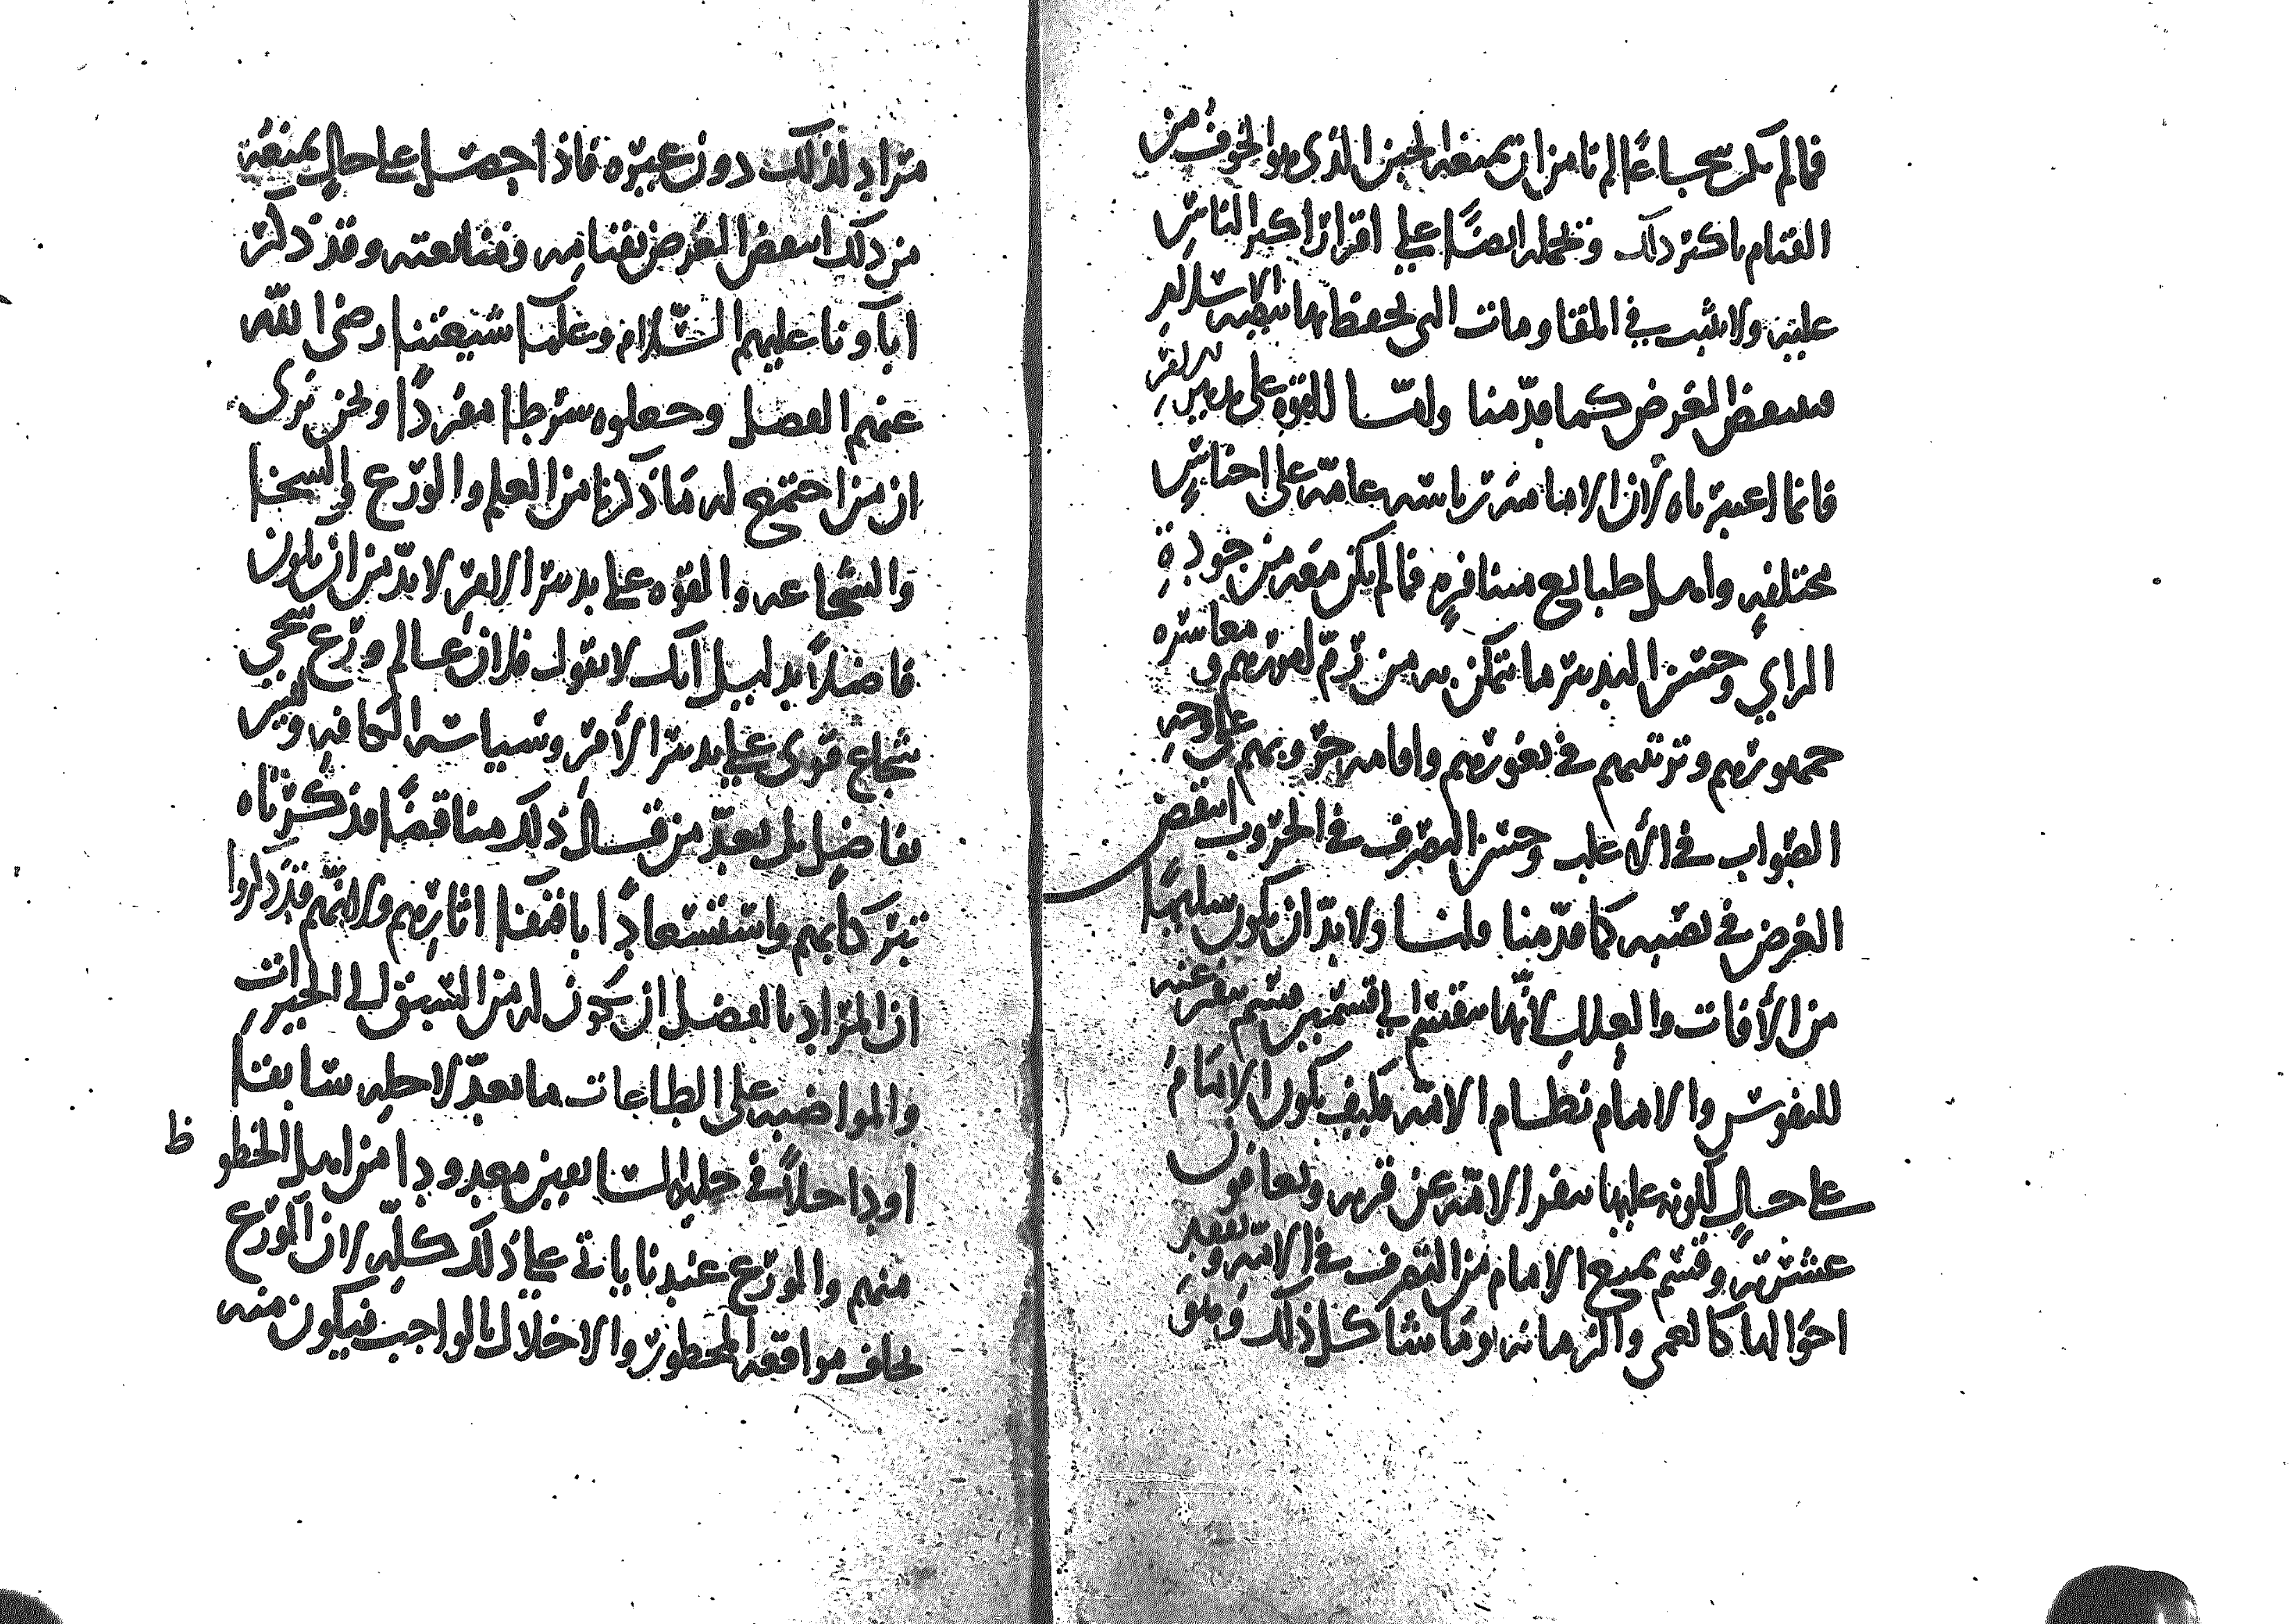 فما لم يكن شجاعًا لم نامن ان يمنعه الجبن الذي هو الخوف من
القتام باكثر ذلك وتحمله ايضًا على اقرار اكثر الناس
عليه ولا يثبت في المقاومات التي يحفظ بها بيضه الاسلام
فينتقض الغرض كما قدّمنا واما القوة على تدبير الامر
فانما اعتبرناه لان الامامه رئاسه عامّه على اجناسٍ
مختلفهٍ واهل طبايع متنافرهٍ فما لم يكن معه من جودةِ
الراي وحسن التدبير ما يتمكن به من زمّ امورهم و معاشره
جمهورهم وترتيبهم في ثغورهم واقامه حروبهم على وجهِ
الصّواب في الأغلب وحسن التصرف في الحروب انتقض
الغرض في نصبه كما قدّمنا قلنا ولا بدّ ان يكون سليمًا
من الأفات والعلل لأنّها تنقسم الى قسمين قسم ينفر عنه
النفوس والامام نظام الامّه فكيف يكون الامام
على حالٍ يكون عليها تنفر الامّه عن قربه ويعافون
عشرته وقسم يمنع الامام من التصرف في الامّه وتفقد
احوالها كالعمى والزمانه وما شاكل ذلك وهو
مراد لذلك دون غيره فاذا حصل على حالٍ يمنعه
من ذلك انتقض الغرض بقيامه ومتابعته وقد ذكر
اباؤنا عليهم السّلام وعلما شيعتنا رضي الله
عنهم الفضل وجعلوه شرطا مفردًا ونحن نرى
ان من اجتمع له ما ذكرنا من العلم والورع والسخا
والشجاعه والقوه على تدبير الامر لا بدّ من ان يكون
فاضلاً بدليل انك لا تقول فلان عالم ورع سخي
شجاع قوي على تدبير الأمر وسياسه الكافه وليس
بفاضل بل يعدّ من قال ذلك مناقضًا فذكرناه
تبركا بهم واستسعادًا باقتفا اثارهم ولانهم قد ذكروا
ان المراد بالفضل ان يكون له من السبق الى الخيرات
والمواضبه على الطاعات ما يعدّ لاجله سابقا
او داخلاً في جمله السابقين معدودا من اهل الخطو ظ
منهم والورع عندنا ياتي على ذلك كلّه لان الورع
يخاف مواقعه المحظور والاخلال بالواجب فيكون منه